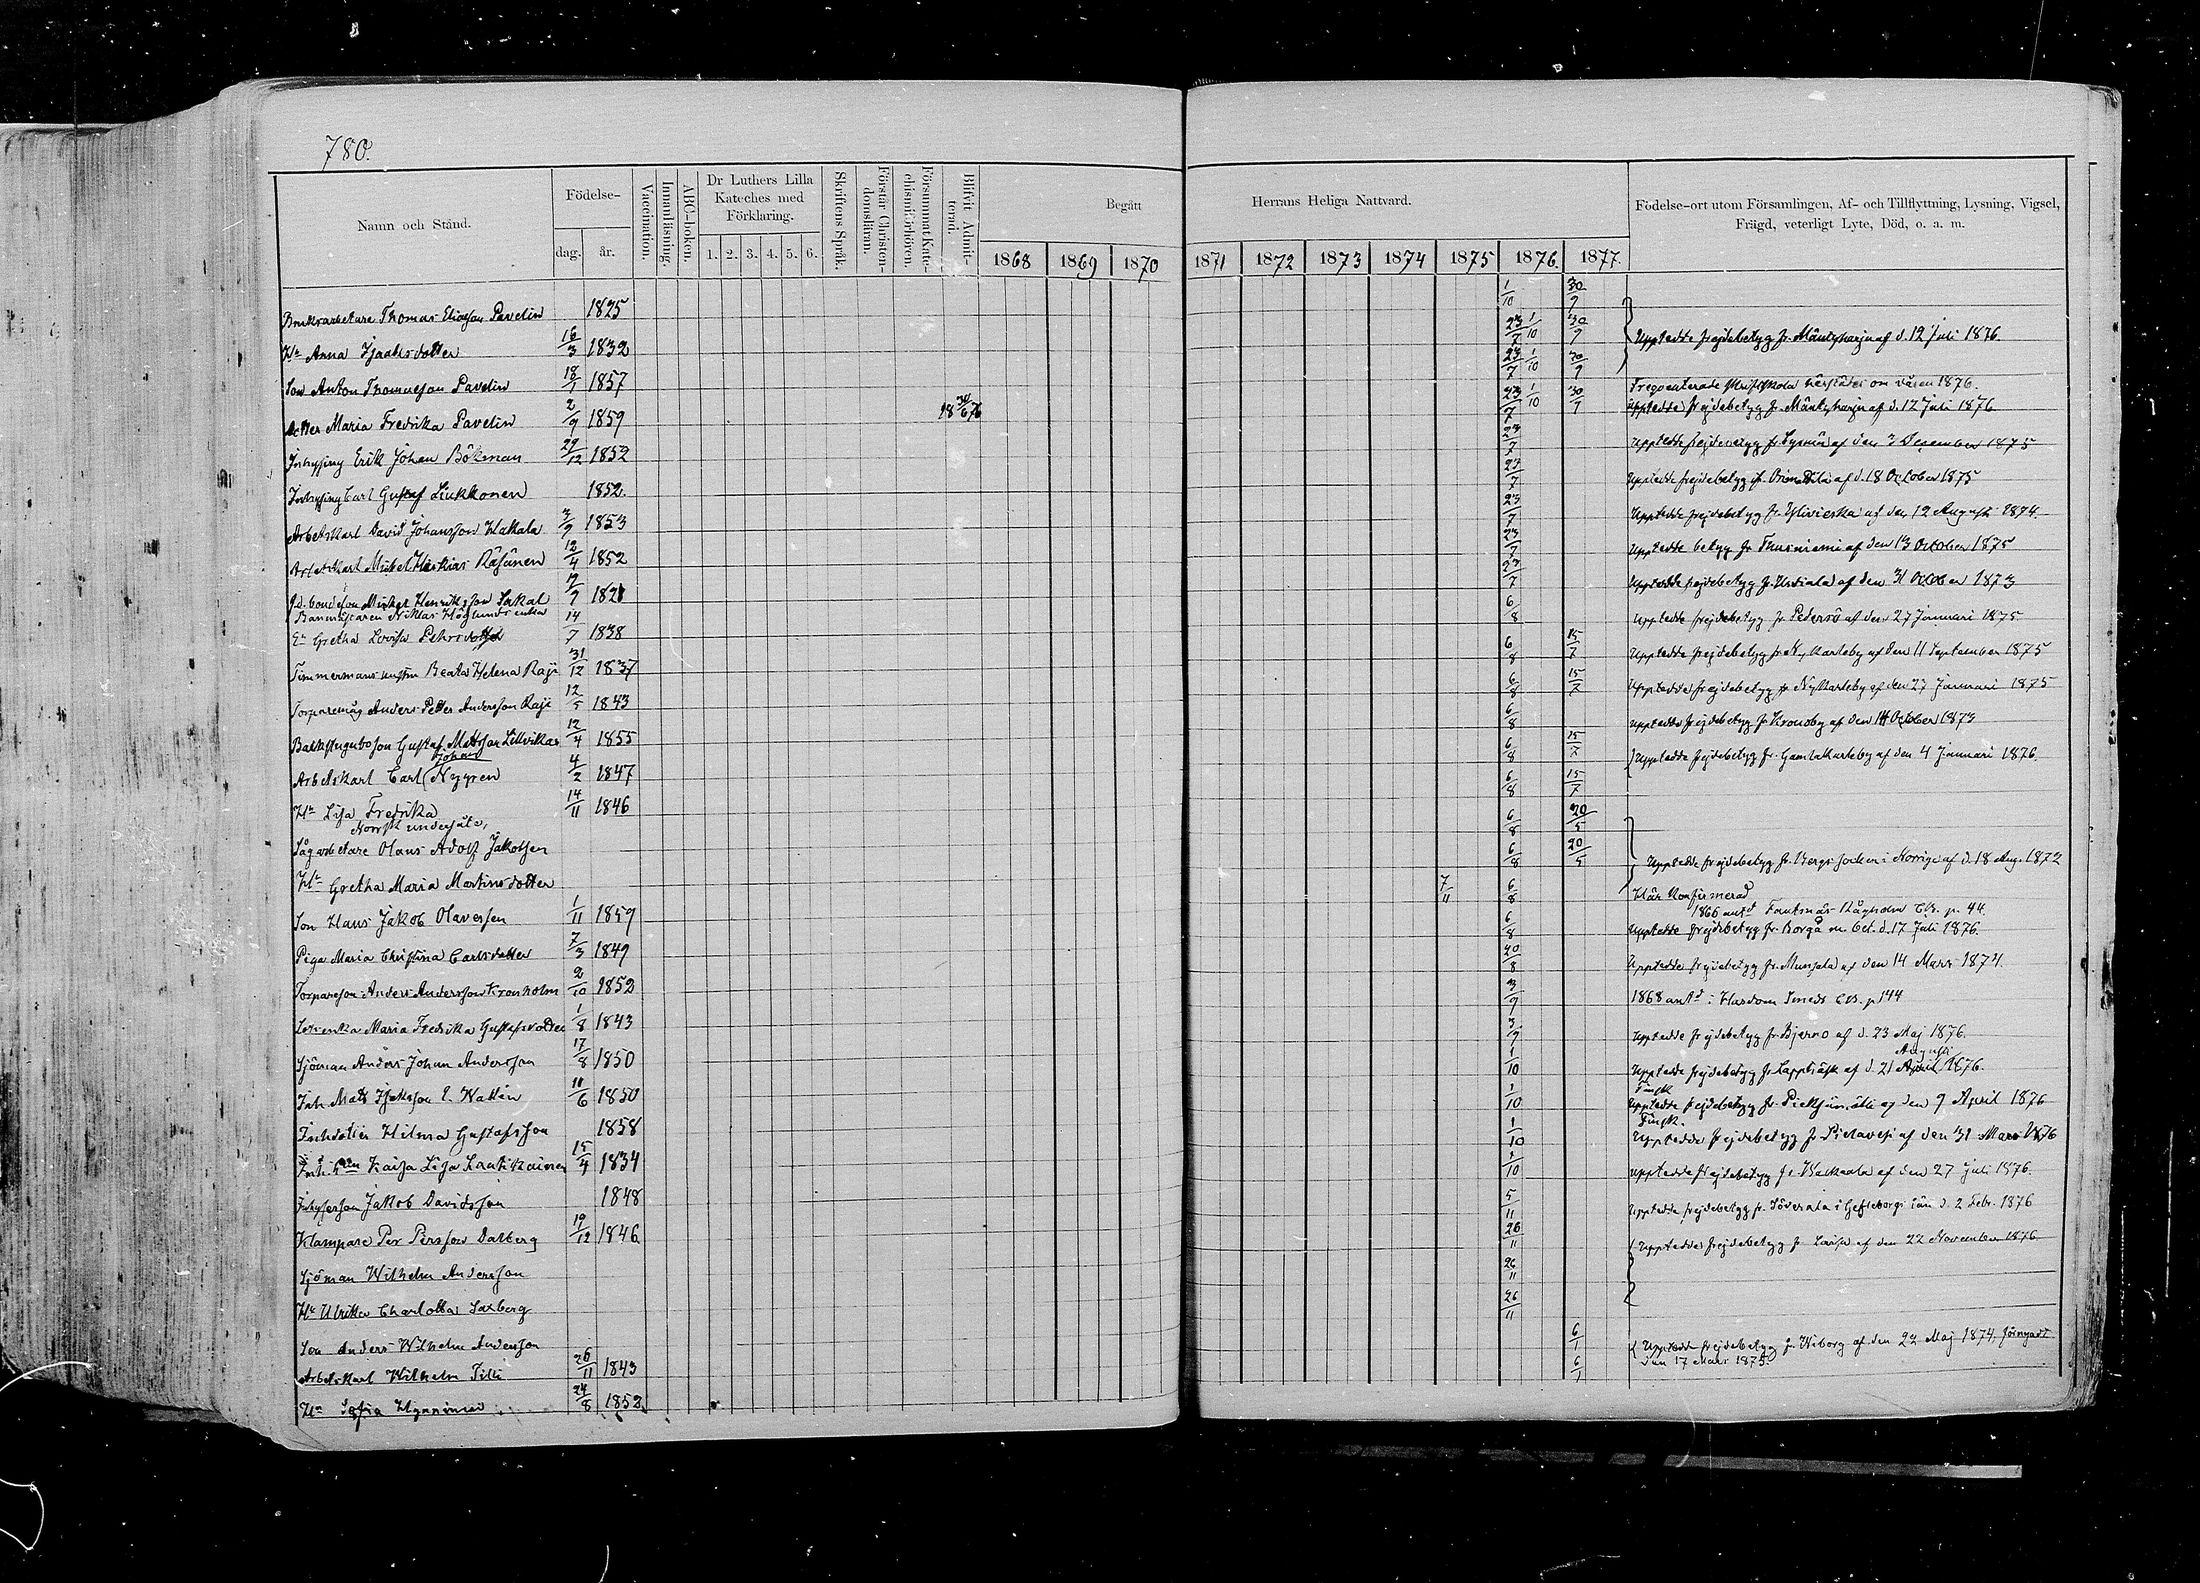 780.
Namn och Stånd.
Födelse-
dag.
år.
Vaccination.
Innanläsning.
ABC-boken.
Dr Luthers Lilla
Kateches med
Förklaring.
1. 2. 3. 4. 5. 6.
Skriftens Språk.
Förstår Christen-
domsläran.
Försummat Kate-
chismiförhören.
Blifvit Admit-
terad.
Begått
Herrans Heliga Nattvard.
1868 1869 1870 1871 1872 1873 1874 1875 1876 1877
Födelse-ort utom Församlingen, Af- och Tillflyttning, Lysning, Vigsel,
Frägd, veterligt Lyte, Död, o. a. m.
Bruksarbetare Thomas Eliasson Pavelin 1825 1/10 30/9
Hu Anna Isaaksdotter 16/3 1832 23/7 1/10 30/9 Upptedde frejdebetyg fr. Mäntyharju af d. 12 Juli 1876.
Son Anton Thomasson Pavelin 18/1 1857 23/7 1/10 30/9
Dotter Maria Fredrika Pavelin 2/9 1859 23/7 1/10 30/9 Frequenterade skriftskola härstädes om våren 1876.
upptedde frejdebetyg fr. Mäntyharju af d. 12 Juli 1876
Inhysing Erik Johan Bökman 29/12 1852 23/7 Upptedde frejdebetyg fr. Sysmä af den 3 December 1875
Inhysing Carl Gustaf Liukkonen 1852. 23/7 Upptedde frejdebetyg fr. Orimattila af d. 18 October 1875
Arbetskarl David Johansson Hakala 3/9 1853 23/7 Upptedde frejdebetyg fr. Ylivieska af den 12 Augusti 1874.
Arbetskarl Mikel Hiskias Räsänen 12/4 1852 23/7 Upptedde betyg fr Tuusniemi af den 13 October 1875
f.d. bondeson Mickel Henriksson Sakal 1821 23/7 Upptedde frejdebetyg fr. Urdiala af den 31 October 1873
Banvaktaren Niklas Höglunds enka
Ea Gretha Lovisa Pehrsdotter 14/7 1838 6/8 Upptedde frejdebetyg fr Pedersö af den 27 Januari 1875.
Timmermans hustru Beata Helena Raji 31/12 1837 6/8 15/7 Upptedde frejdebetyg fr Ny Karleby af den 11 September 1875
Torparemåg Anders Petter Andersson Raji 12/5 1843 6/8 15/7 Upptedde frejdebetyg fr. NyKarleby af den 27 Januari 1875
Backstuguboson Gustaf Mattsson Lillvikas 12/4 1855 6/8 Upptedde frejdebetyg fr Kronoby af den 14 October 1873
Johan
Arbetskarl Carl Nygren 4/2 1847 6/8 15/7 Upptedde frejdebetyg fr. Gamlakarleby af den 4 Januari 1876.
Hu Lisa Fredrika 14/11 1846 6/8 15/7
Norsk undersåte,
Sågarbetare Olaus Adolf Jakobsen 6/8 20/5
Hu Gretha Maria Martinsdotter 6/8 20/5 Upptedde frejdebetyg fr. Bergs socken i Norrige af d. 18 Aug. 1872
Son Hans Jakob Olavessen 1/11 1859 7/11 6/8 Här Konfirmerad
1866 antd
Piga Maria Christina Carlsdotter 7/3 1849 6/8 Upptedde frejdebetyg fr. Borgå m. bet. d. 17 Juli 1876.
Torpareson Anders Andersson Kronholm 2/10 1852 20/8 Upptedde frejdebetyg fr. Munsala af den 14 Mars 1874.
Maria Fredrika Gustafsdotter 1/8 1843 3/9 1868 antd i Hardom Smeds CB. p 144
Sjöman Anders Johan Andersson 17/8 1850 3/9 Upptedde frejdebetyg fr. Bjerno af d. 23 Maj 1876.
Inh. Mats Isaksson E. Wallin 11/6 1850 1/10 Upptedde frejdebetyg fr. Lappträsk af d. 21 April Augusti 1876.
Inhdotter Hilma Gustafsson 1858 1/10 Finsk
Upptedde frejdebetyg fr. Pieksämäki af den 9 April 1876
Inh. hru Kaisa Lisa Laatikainen 15/4 1834 1/10 Finsk.
Upptedde frejdebetyg fr. Pielavesi af den 31 Mars 1876
Inhyseson Jakob Davidsson 1848 1/10 Upptedde frejdebetyg fr. Walkeala af den 27 Juli 1876.
Klampare Per Persson Dalberg 19/12 1846 5/11 Upptedde frejdebetyg fr. Söderala i Gefleborgs län d. 2 Febr. 1876
Sjöman Wilhelm Andersson 26/11 Upptedde frejdebetyg fr Lovisa af den 22 November 1876
Hu Ulrika Charlotta Saxberg 26/11
Son Anders Wilhelm Andersson 26/11
Arbetskarl Wilhelm Tilli 26/11 1843 6/1 Upptedde frejdebetyg fr Wiborg af den 22 Maj 1874. förnyadt
den 17 Mars 1875.
Hu Sofia Hynninen 24/8 1852 6/1